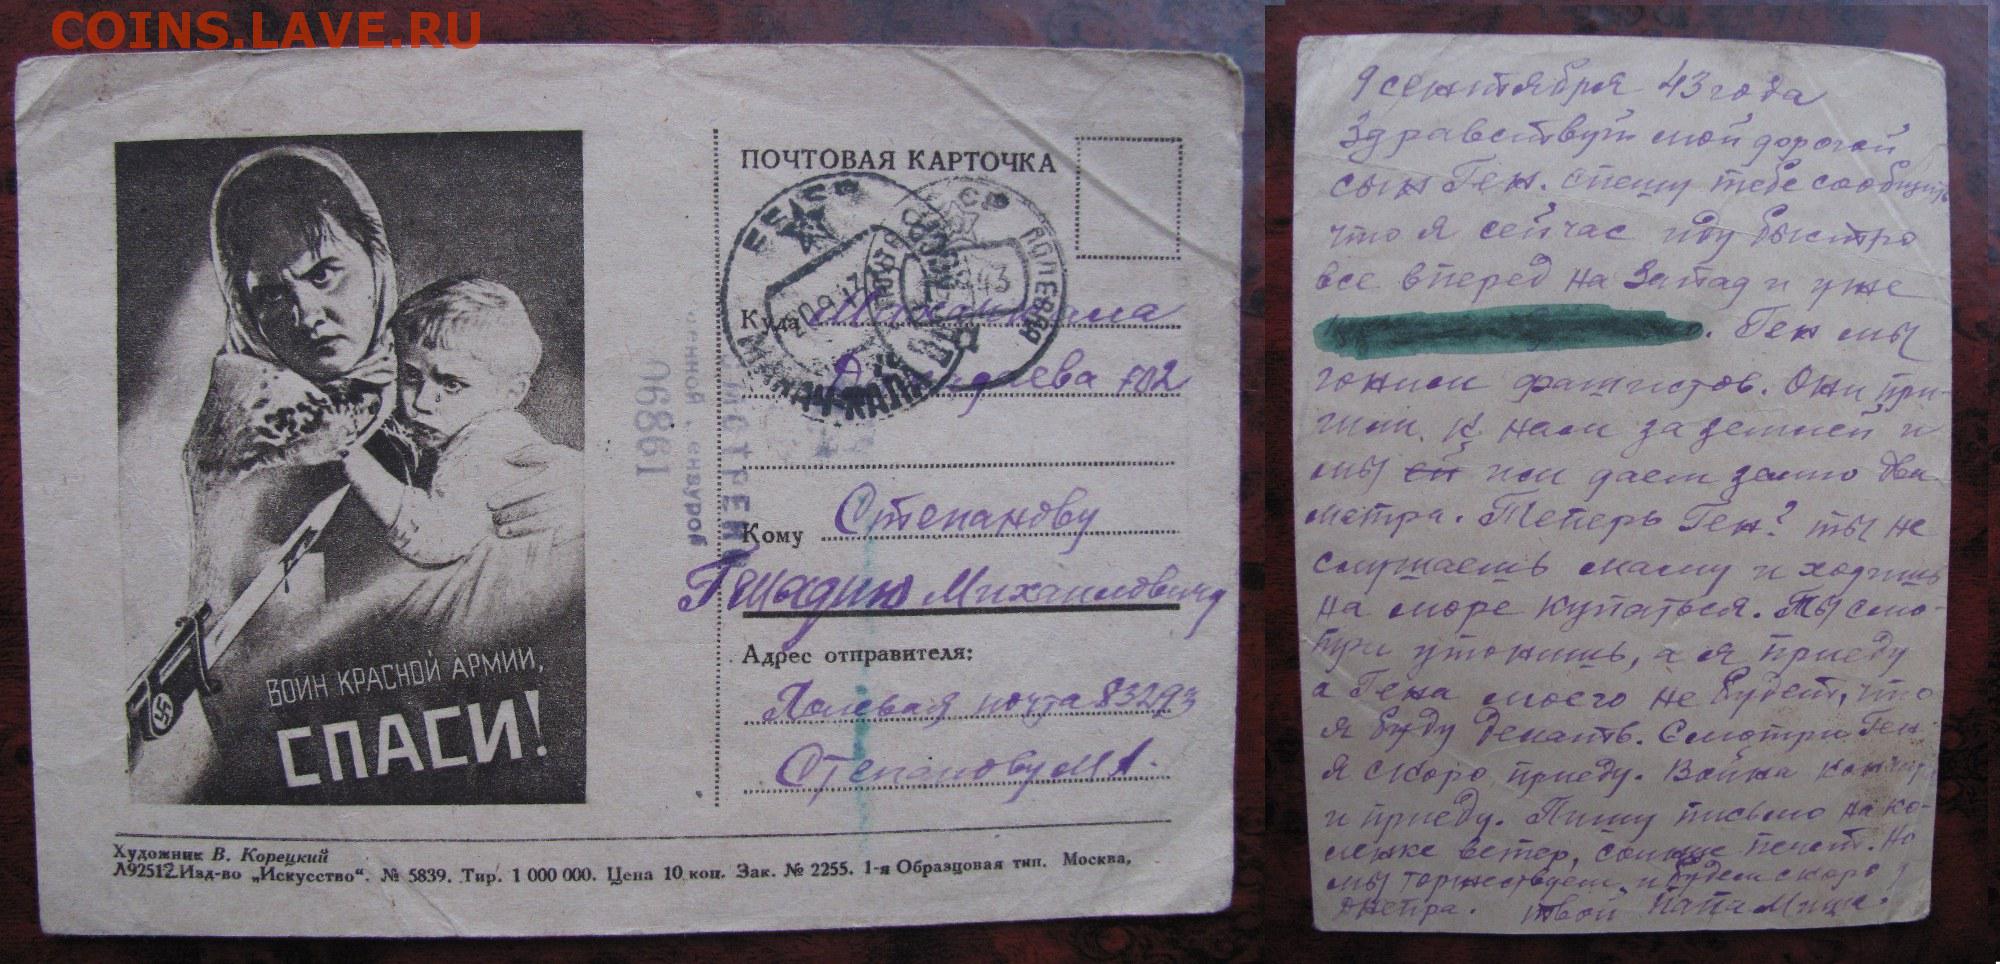 COINS.LAVE.RU
ПОЧТОВАЯ КАРТОЧКА
Куда Махачкала
702
Кому Степанову
Геннадию Михаиловичу
Адрес отправителя:
Полевая почта 83293
Степанову М А.
06861
ВОИН КРАСНОЙ АРМИИ,
СПАСИ!
Художник В. Корецкий
Л92512. Изд-во „Искусство“. № 5839. Тир. 1 000 000. Цена 10 коп. Зак. № 2255. 1-я Образцовая тип. Москва,
9 сентября 43 года
Здравствуй мой дорогой
сын Ген. спешу тебе сообщить
что я сейчас иду быстро
все вперед на Запад и уже
Ген мы
гоним фашистов. Они при-
шли к нам за землей и
мы им даем земло два
метра. Теперь Ген? ты не
слушаешь маму и ходишь
на море купаться. Ты смо-
три утонишь, а я приеду
а Гена моего не будет, что
я буду делать. Смотри Ген.
я скоро приеду. Война кончу
и приеду. Пишу письмо на ко-
ленке ветер, солнце печет. Но
мы торжествуем и будем скоро у
Днепра. твой папа Миша.